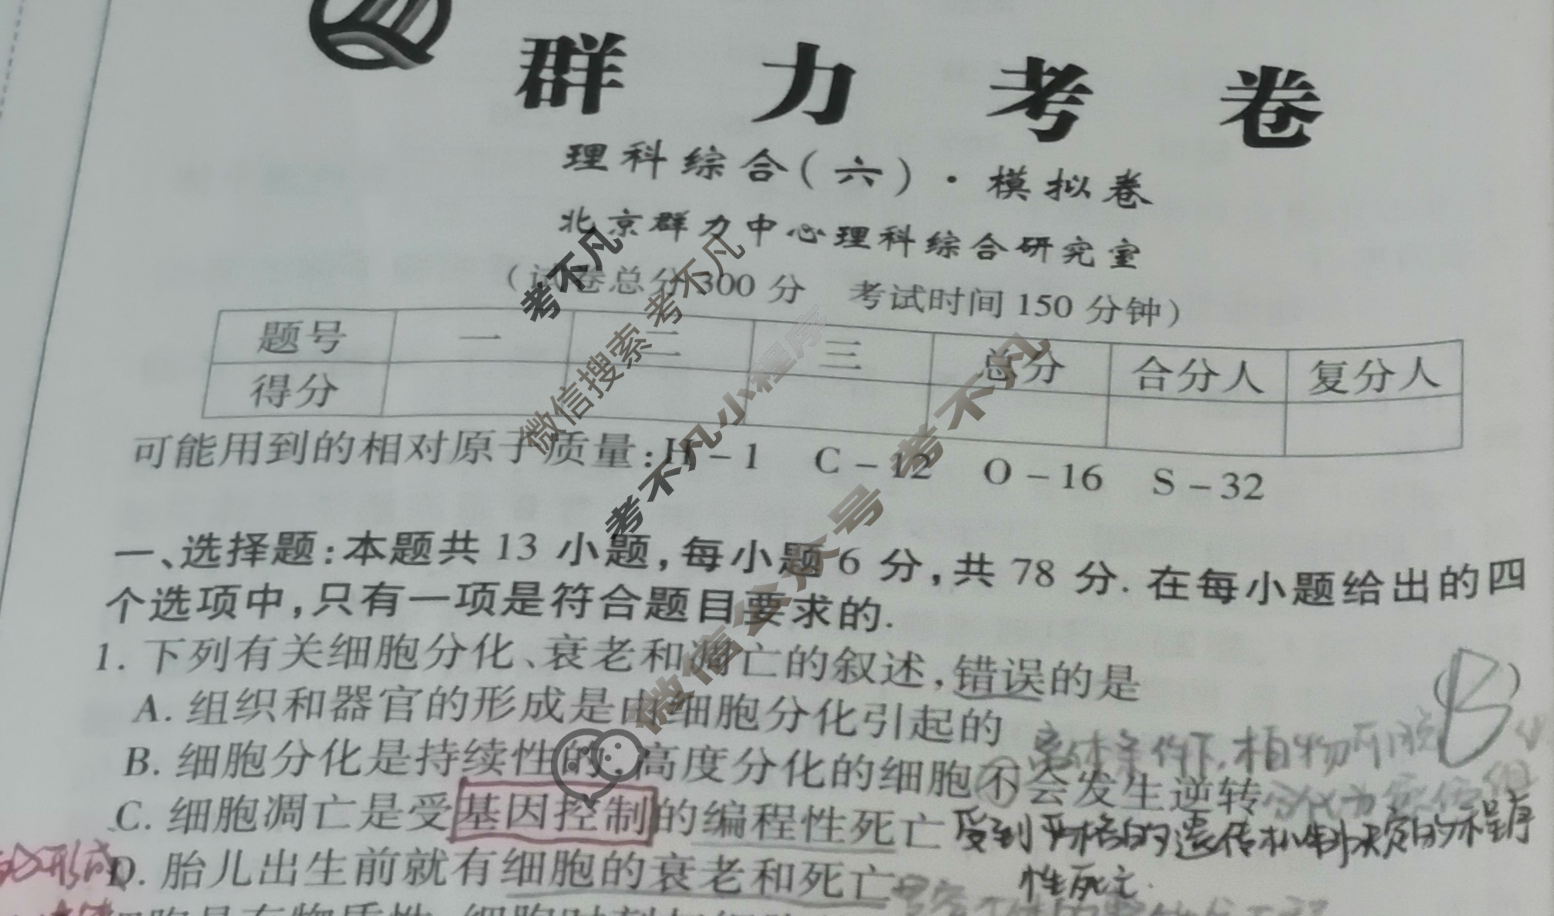 群力考卷
理科综合(六)·模拟卷
北京群力中心理科综合研究室
(试卷总分300分 考试时间150分钟)
题号 一 二 三 总分 合分人 复分人
得分
可能用到的相对原子质量:H-1 C-12 O-16 S-32
一、选择题:本题共13小题,每小题6分,共78分.在每小题给出的四
个选项中,只有一项是符合题目要求的.
1.下列有关细胞分化、衰老和凋亡的叙述,错误的是 (B)
A.组织和器官的形成是由细胞分化引起的
离体条件下,植物
B.细胞分化是持续性的,高度分化的细胞不会发生逆转
C.细胞凋亡是受基因控制的编程性死亡 受到严格的遗传机制决定的程序
性死亡.
D.胎儿出生前就有细胞的衰老和死亡
考不凡
微信搜索 考不凡
考不凡小程序
微信公众号 考不凡